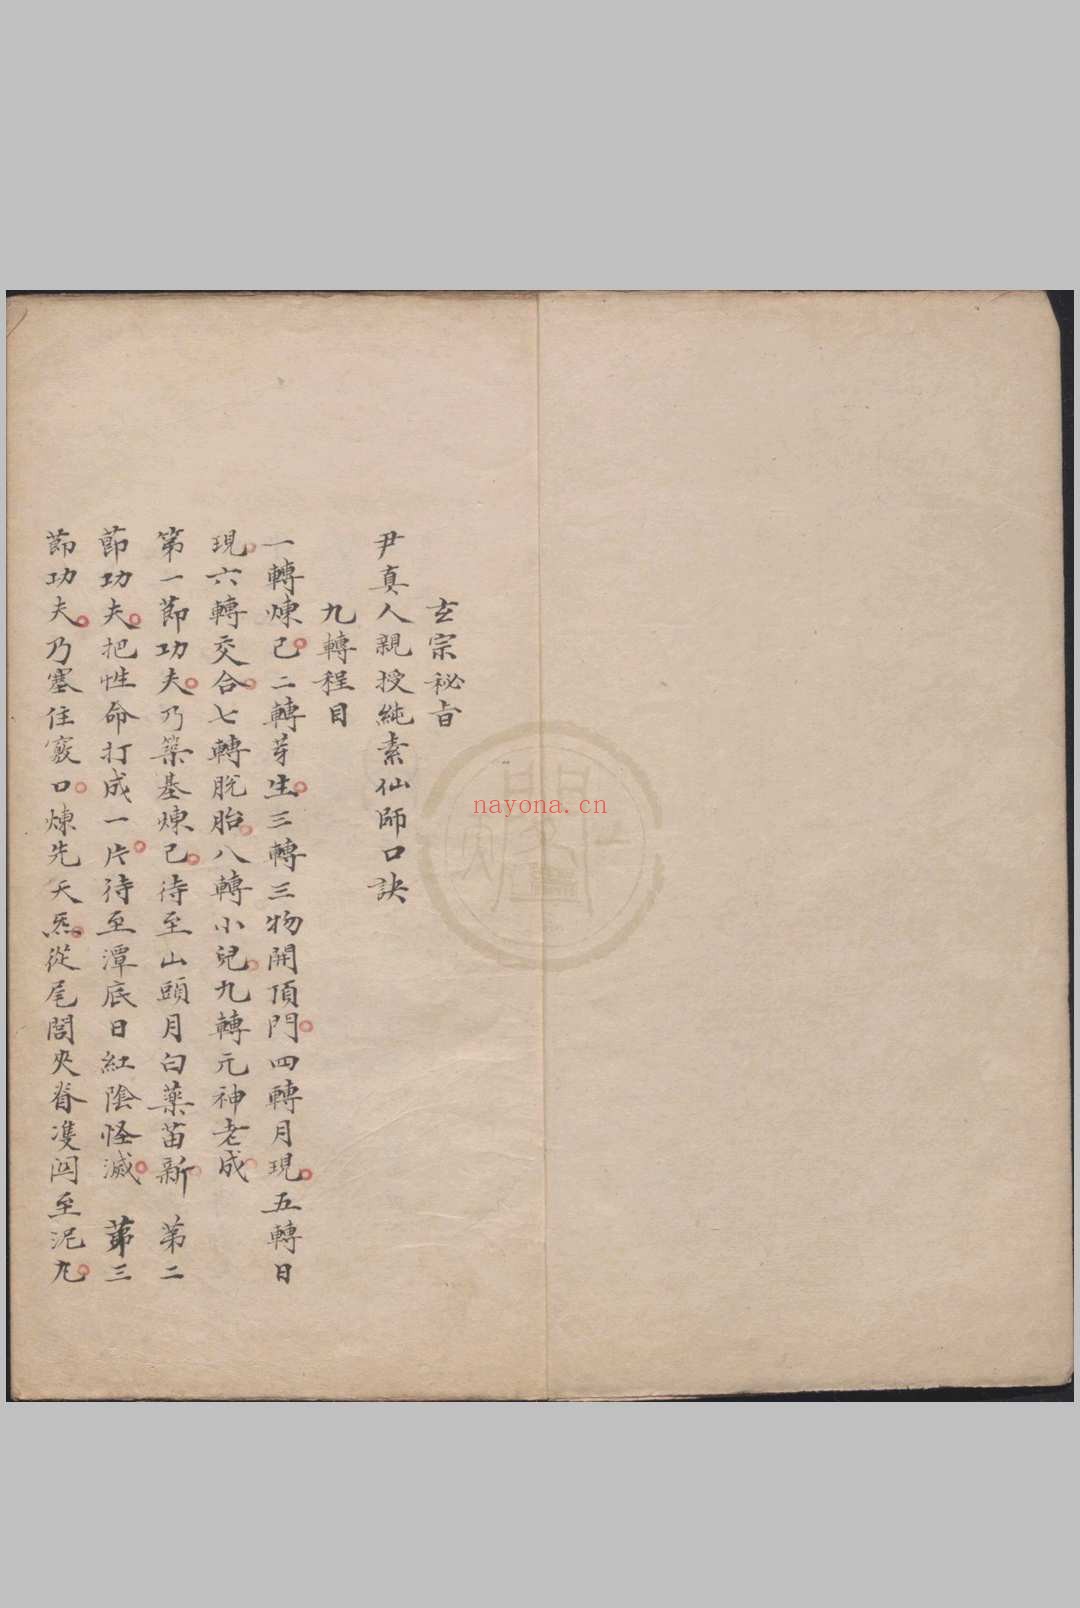 玄宗祕旨
尹真人親授純素仙師口訣
九轉程目
一轉煉己二轉芽生三轉三物開頂門四轉月現五轉日
現六轉交合七轉脫胎八轉小兒九轉元神老成
第一節功夫乃築基煉己待至山頭月白藥苗新 第二
節功夫把性命打成一片待至潭底日紅陰怪滅 第三
節功夫乃塞住竅口煉先天炁從尾閭夾脊雙関至泥丸
nayona.cn